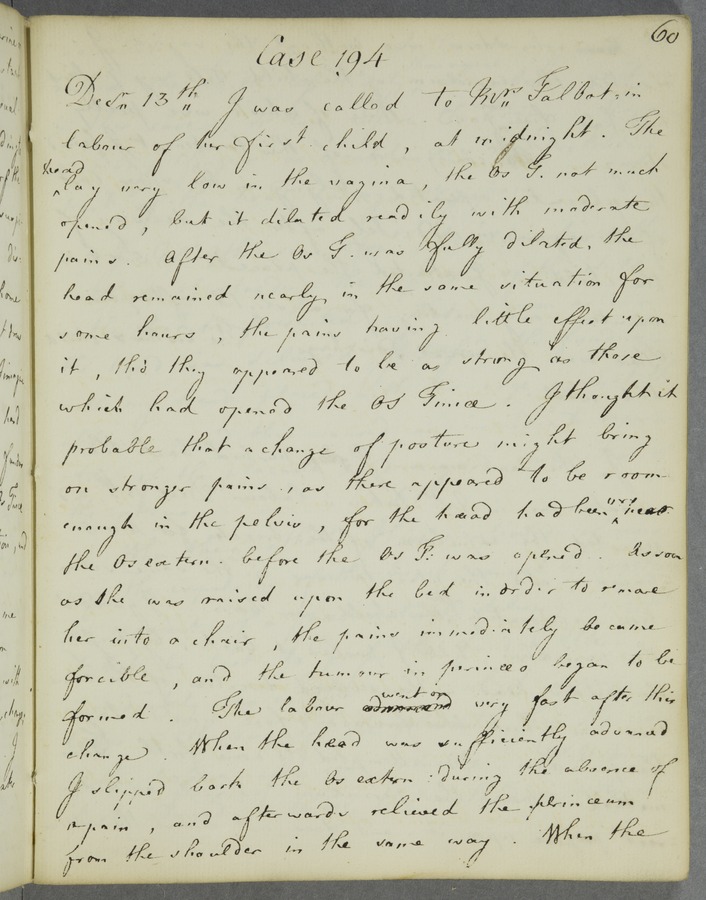 60
Case 194
Decr 13th I was called to Mrs Talbot in
labour of her first child, at midnight. The
head
lay very low in the vagina, the Os T. not much
opened, but it dilated readily with moderate
pains. After the Os T. was fully dilated, the
head remained nearly in the same situation for
some hours, the pains having little effect upon
it, tho they appeared to be as strong as those
which had opened the Os Tincæ. I thought it
probable that a change of posture might bring
on stronger pains, as there appeared to be room
enough in the pelvis, for the head had been very near
the Os extern. before the Os T: was opened. As soon
as she was raised upon the bed in order to remove
her into a chair, the pains immediately became
forcible, and the tumour in perinæo began to be
formed. The labour went on very fast after this
change. When the head was sufficiently advanced
I slipped back the Os extern: during the absence of
a pain, and afterwards relieved the perineum
from the shoulder in the same way. When the